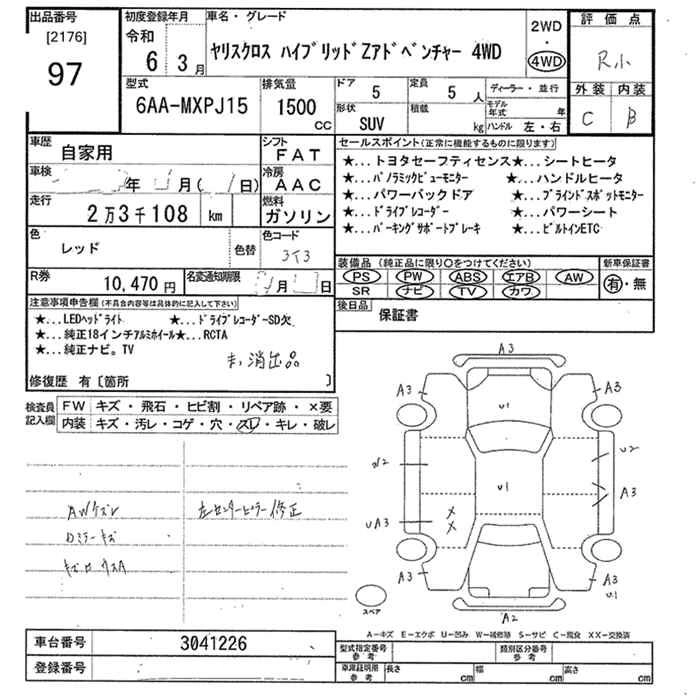 出品番号 初度登録年月 車名・グレード 2WD・4WD 評価点
[2176] 令和 6 3月 ヤリスクロス ハイブリッドZアドベンチャー 4WD R小
97
型式 排気量 ドア 5 定員 5人 ディーラー・並行 外装 内装
6AA-MXPJ15 1500cc 形状 SUV 積載 kg モデル年式 年 ハンドル 左・右 C B
車歴 自家用 シフト FAT セールスポイント(正常に機能するものに限ります)
車検 年 月( 日) 冷房 AAC ★...トヨタセーフティセンス★...シートヒータ
★...パノラミックビューモニター ★...ハンドルヒータ
走行 2万3千108 km 燃料 ガソリン ★...パワーバックドア ★...ブラインドスポットモニター
★...ドライブレコーダー ★...パワーシート
色 レッド 色替 色コード 3T3 ★...パーキングサポートブレーキ ★...ビルトインETC
R券 10,470円 名変通知期限 月 日 装備品(純正品に限り○をつけてください) 新車保証書
PS PW ABS エアB AW 有・無
SR ナビ TV カワ
注意事項申告欄(不具合内容等は具体的に記入して下さい) 後日品 保証書
★...LEDヘッドライト ★...ドライブレコーダーSD欠
★...純正18インチアルミホイール★...RCTA
★...純正ナビ。TV
消出品
修復歴 有〔箇所 〕
検査員記入欄 FW キズ・飛石・ヒビ割・リペア跡・×要
内装 キズ・汚レ・コゲ・穴・スレ・キレ・破レ
AWケズレ 左センターピラー修正
Dミラーキズ
A3
A3 U1 A3
W2 U2
U1
UA3 × × A3
A3 A3
U1
A2
スペア
A-キズ E-エクボ U-凹み W-補修跡 S-サビ C-腐食 XX-交換済
車台番号 3041226 型式指定番号 参考 類別区分番号 参考
登録番号 車庫証明用 参考 長さ cm 幅 cm 高さ cm